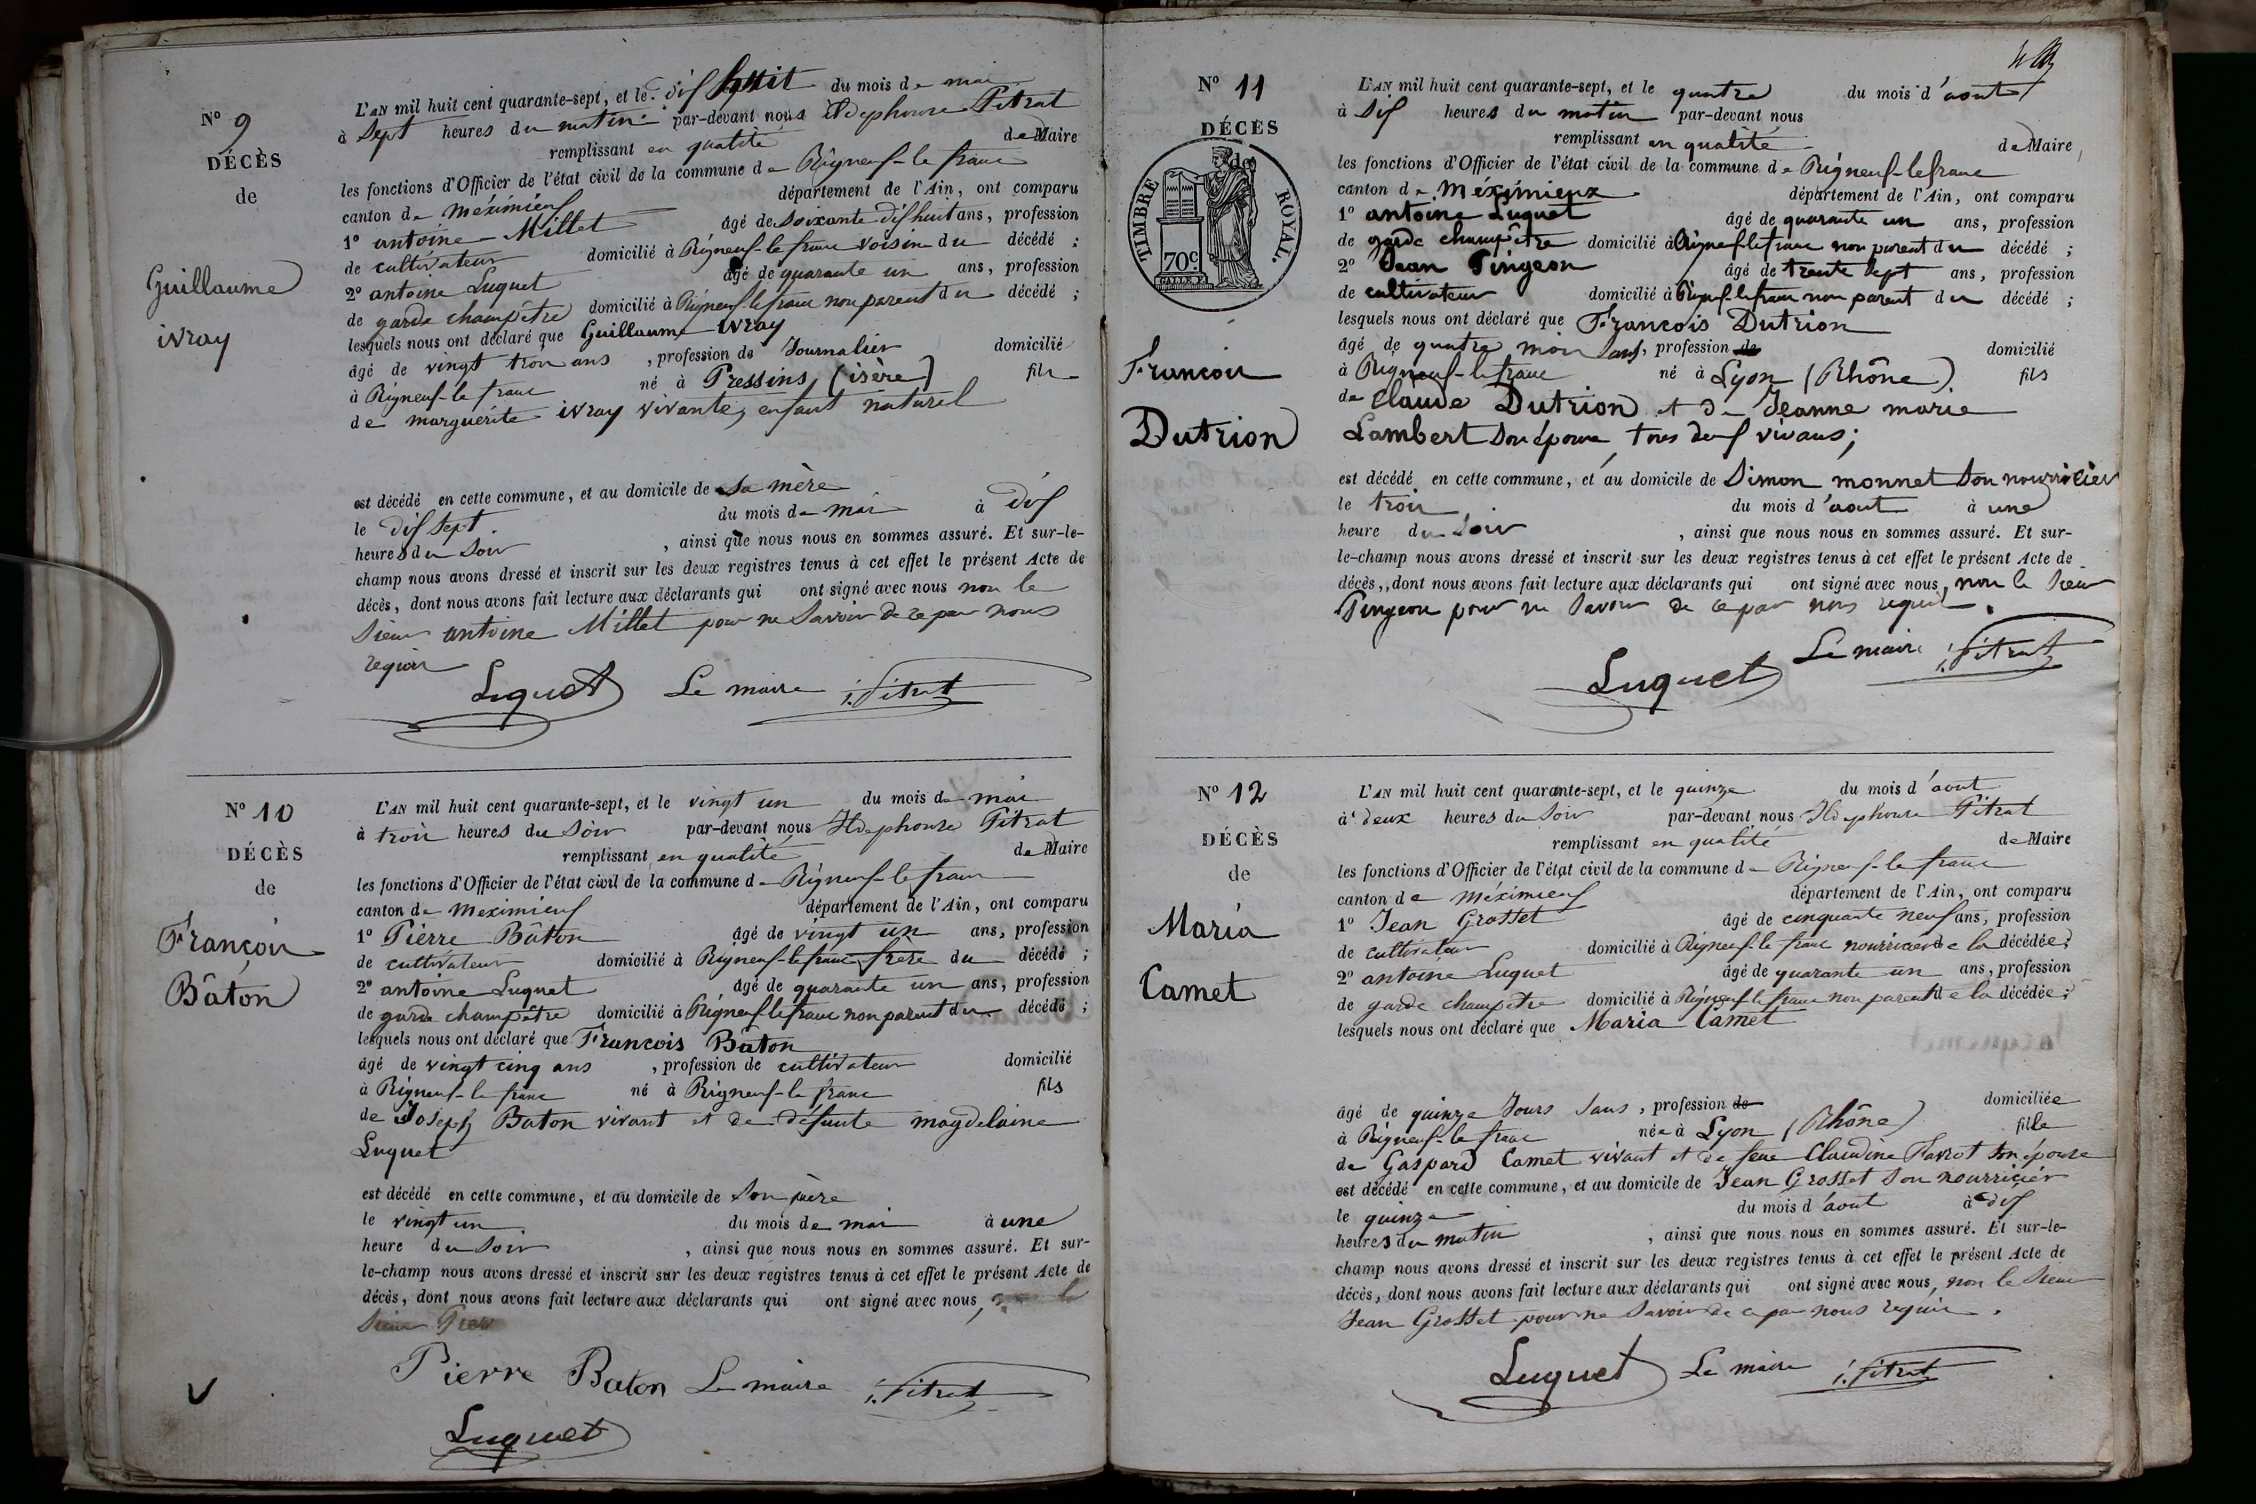 N° 9
DÉCÈS
de
Guillaume
ivray
L'AN mil huit cent quarante-sept, et le dix huit du mois de mai
à Sept heures du matin par-devant nous Ildephonse Pitrat
remplissant en qualité de Maire
les fonctions d'Officier de l'état civil de la commune de Rigneuf-le franc
canton de Méximieux département de l'Ain, ont comparu
1° antoine Millet âgé de Soixante dix huit ans, profession
de cultivateur domicilié à Rigneux-le franc voisin du décédé ;
2° antoine Luquet âgé de quarante un ans, profession
de garde champêtre domicilié à Rigneux le franc non parent du décédé ;
lesquels nous ont déclaré que Guillaume ivray
âgé de vingt trois ans , profession de Journalier domicilié
à Rigneux-le franc né à Pressins (isère) fils
de marguérite ivray vivante, enfant naturel
est décédé en cette commune, et au domicile de Sa mère
le dix Sept du mois de mai à dix
heures du Soir , ainsi que nous nous en sommes assuré. Et sur-le-
champ nous avons dressé et inscrit sur les deux registres tenus à cet effet le présent Acte de
décès, dont nous avons fait lecture aux déclarants qui ont signé avec nous non le
Sieur antoine Millet pour ne Savoir de ce par nous
requis
Luquet Le maire i. Pitrat
N° 10
DÉCÈS
de
François
Bâton
L'AN mil huit cent quarante-sept, et le vingt un du mois de mai
à trois heures du Soir par-devant nous Ildephonse Pitrat
remplissant en qualité de Maire
les fonctions d'Officier de l'état civil de la commune de Rigneux-le franc
canton de Meximieux département de l'Ain, ont comparu
1° Pierre Bâton âgé de vingt un ans, profession
de cultivateur domicilié à Rigneux-le franc frère du décédé ;
2° antoine Luquet âgé de quarante un ans, profession
de garde champêtre domicilié à Rigneux le franc non parent du décédé ;
lesquels nous ont déclaré que François Bâton
âgé de vingt cinq ans , profession de cultivateur domicilié
à Rigneux-le franc né à Rigneux-le franc fils
de Joseph Baton vivant et de défunte magdelaine
Luquet
est décédé en cette commune, et au domicile de Son père
le vingt un du mois de mai à une
heure du Soir , ainsi que nous nous en sommes assuré. Et sur-
le-champ nous avons dressé et inscrit sur les deux registres tenus à cet effet le présent Acte de
décès, dont nous avons fait lecture aux déclarants qui ont signé avec nous,
Sieur
Pierre Baton Le maire i. Pitrat
Luquet
N° 11
DÉCÈS
de
TIMBRE ROYAL.
70c.
François
Dutrion
L'AN mil huit cent quarante-sept, et le quatre du mois d'aout
à dix heures du matin par-devant nous
remplissant en qualité de Maire
les fonctions d'Officier de l'état civil de la commune de Rigneux-le franc
canton de Méximieux département de l'Ain, ont comparu
1° antoine Luquet âgé de quarante un ans, profession
de garde champêtre domicilié à Rigneux le franc non parent du décédé ;
2° Jean Pingeon âgé de trente Sept ans, profession
de cultivateur domicilié à Rigneux-le franc non parent du décédé ;
lesquels nous ont déclaré que François Dutrion
âgé de quatre mois Sans, profession de domicilié
à Rigneux-le franc né à Lyon (Rhône) fils
de Claude Dutrion et de Jeanne marie
Lambert Son épouse, tous deux vivans;
est décédé en cette commune, et au domicile de Simon monnet Son nourricier
le trois du mois d'aout à une
heure du Soir , ainsi que nous nous en sommes assuré. Et sur-
le-champ nous avons dressé et inscrit sur les deux registres tenus à cet effet le présent Acte de
décès, dont nous avons fait lecture aux déclarants qui ont signé avec nous, non le Sieur
Pingeon pour ne Savoir de ce par nous requis.
Luquet Le maire i. Pitrat
N° 12
DÉCÈS
de
Maria
Camet
L'AN mil huit cent quarante-sept, et le quinze du mois d'aout
à deux heures du Soir par-devant nous Ildephonse Pitrat
remplissant en qualité de Maire
les fonctions d'Officier de l'état civil de la commune de Rigneux-le franc
canton de Méximieux département de l'Ain, ont comparu
1° Jean Grosset âgé de cinquante neuf ans, profession
de cultivateur domicilié à Rigneux-le franc nourricier de la décédée ;
2° antoine Luquet âgé de quarante un ans, profession
de garde champêtre domicilié à Rigneux le franc non parent de la décédée ;
lesquels nous ont déclaré que Maria Camet
âgé de quinze Jours Sans, profession de domiciliée
à Rigneux-le franc née à Lyon (Rhône) fille
de Gaspard Camet vivant et de feue Claudine Favrot Son épouse
est décédé en cette commune, et au domicile de Jean Grosset Son nourricier
le quinze du mois d'aout à dix
heures du matin , ainsi que nous nous en sommes assuré. Et sur-le-
champ nous avons dressé et inscrit sur les deux registres tenus à cet effet le présent Acte de
décès, dont nous avons fait lecture aux déclarants qui ont signé avec nous, non le Sieur
Jean Grosset pour ne Savoir de ce par nous requis.
Luquet Le maire i. Pitrat